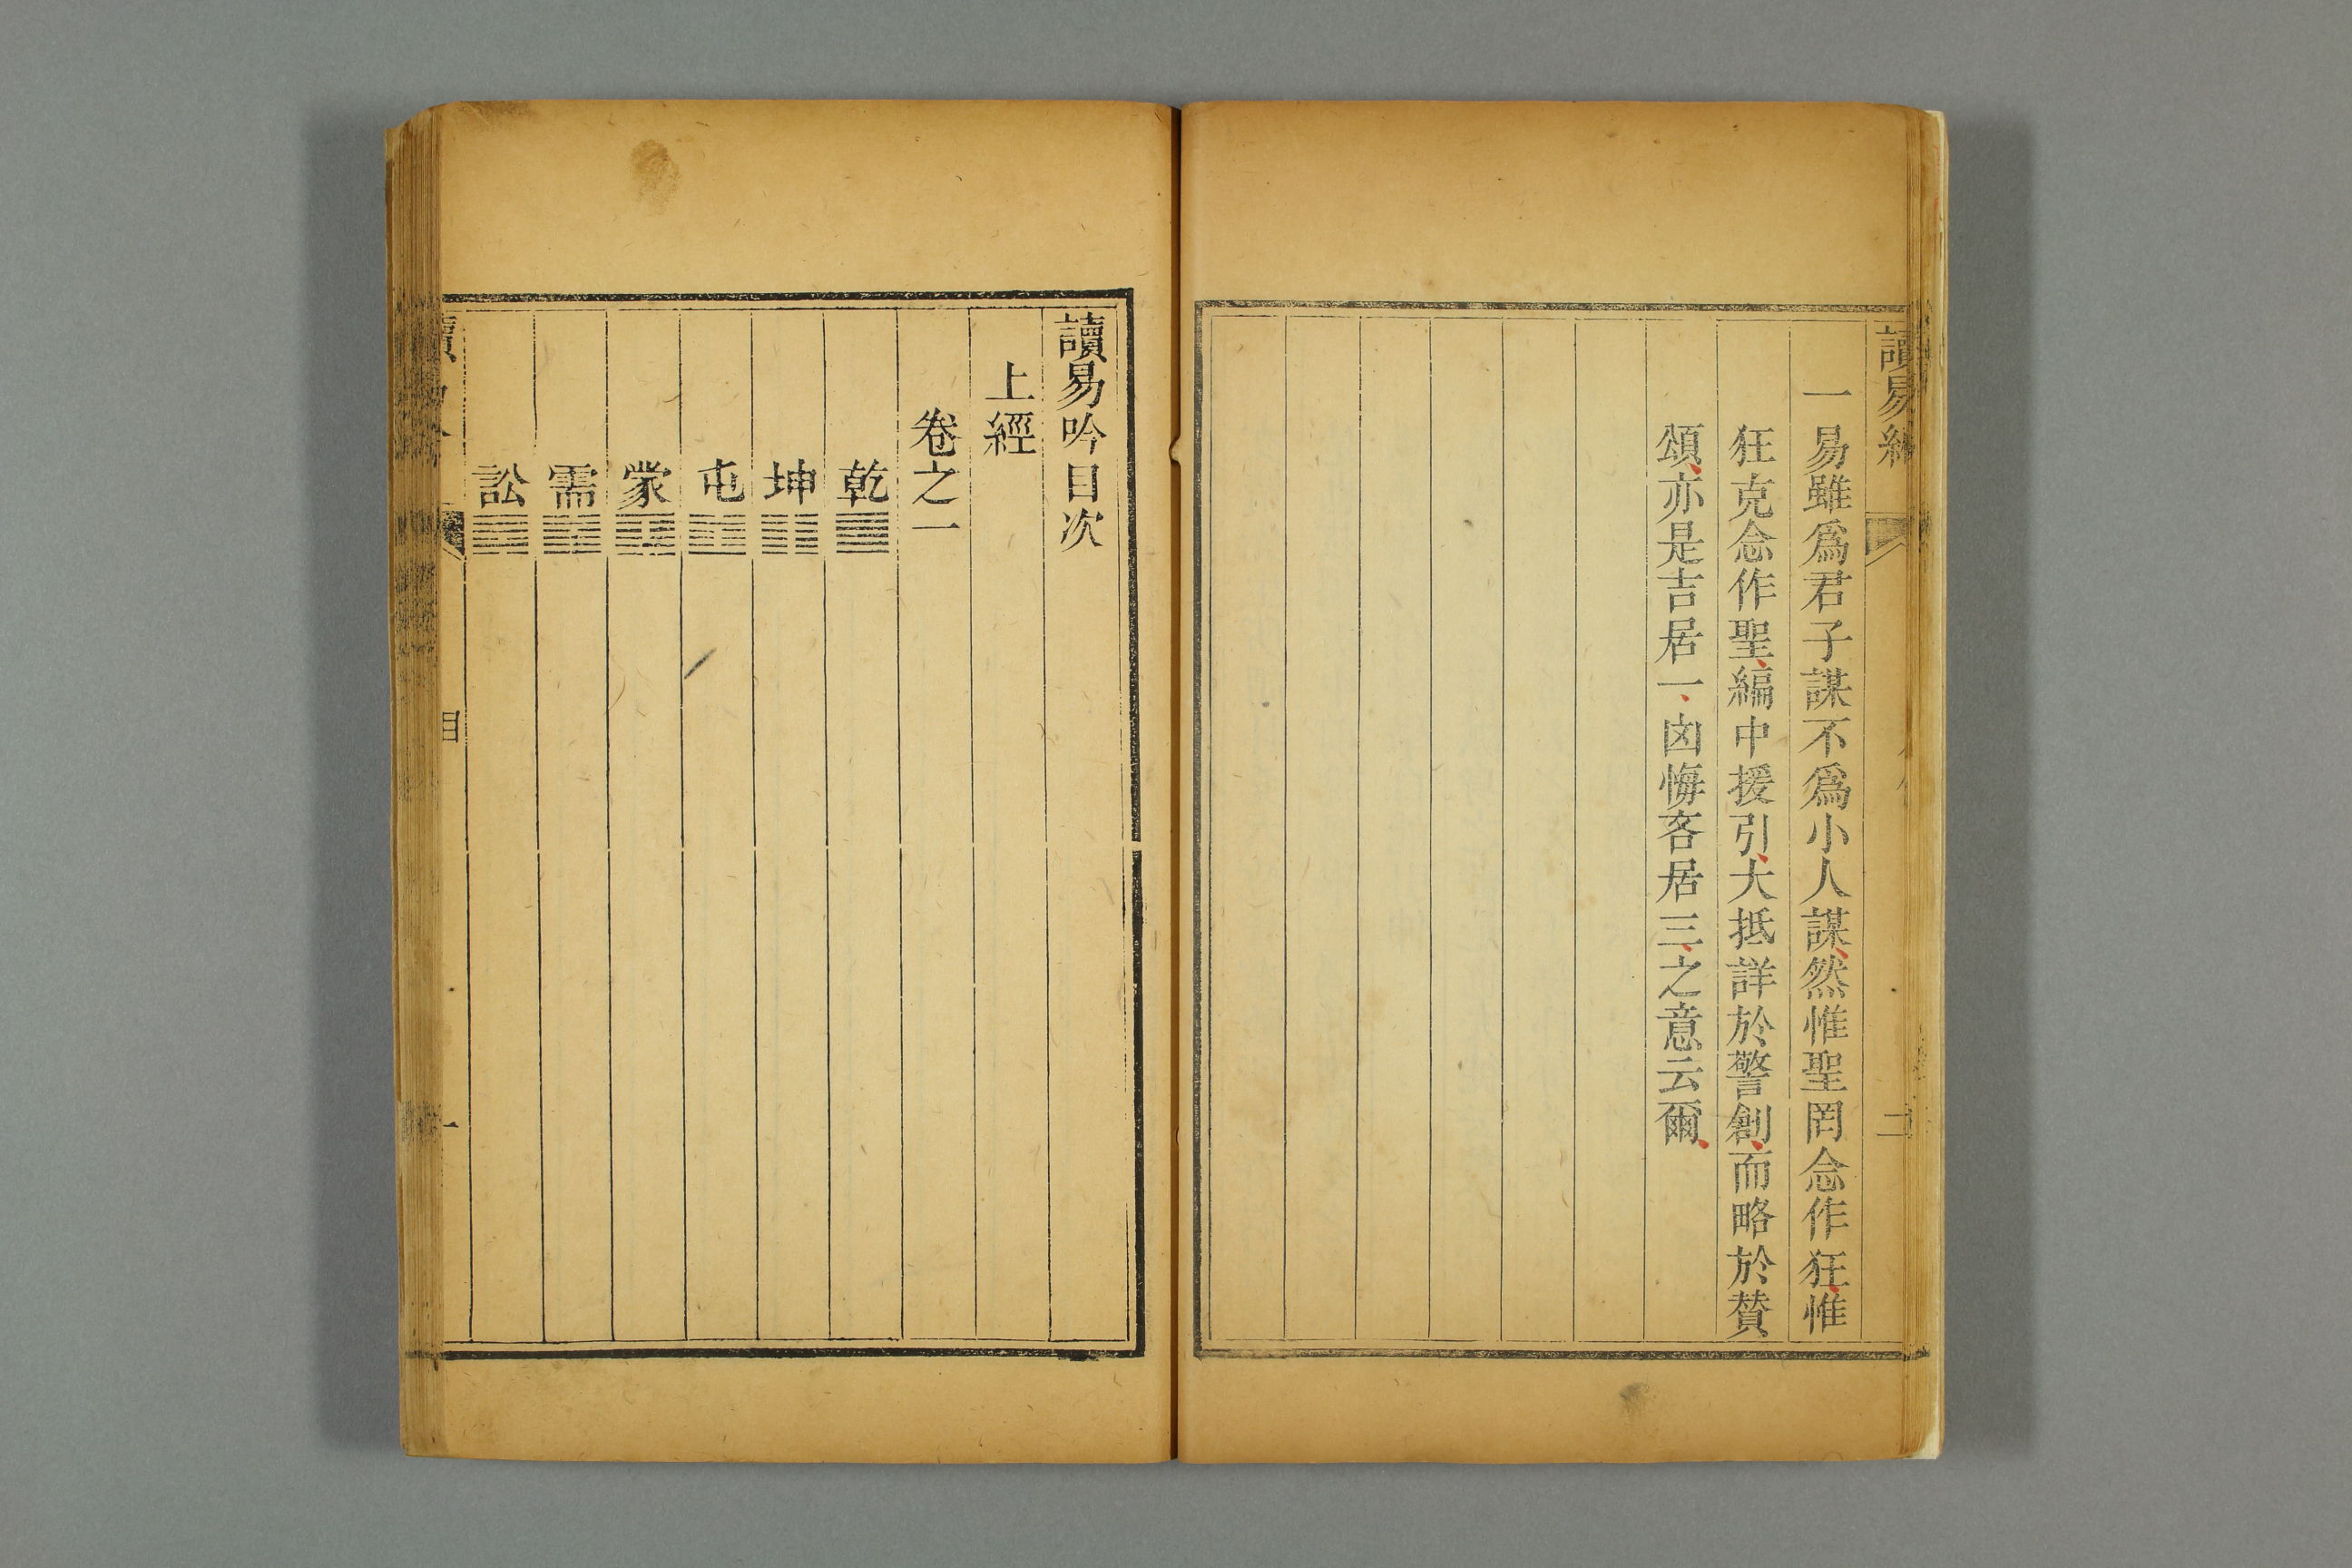 讀易
一易雖爲君子謀不爲小人謀、然惟聖罔念作狂、惟
狂克念作聖、編中援引、大抵詳於警創、而略於賛
頌、亦是吉居一、凶悔吝居三、之意云爾、
二
讀易吟目次
上經
卷之一
乾䷀
坤䷁
屯䷂
蒙䷃
需䷄
訟䷅
目
一